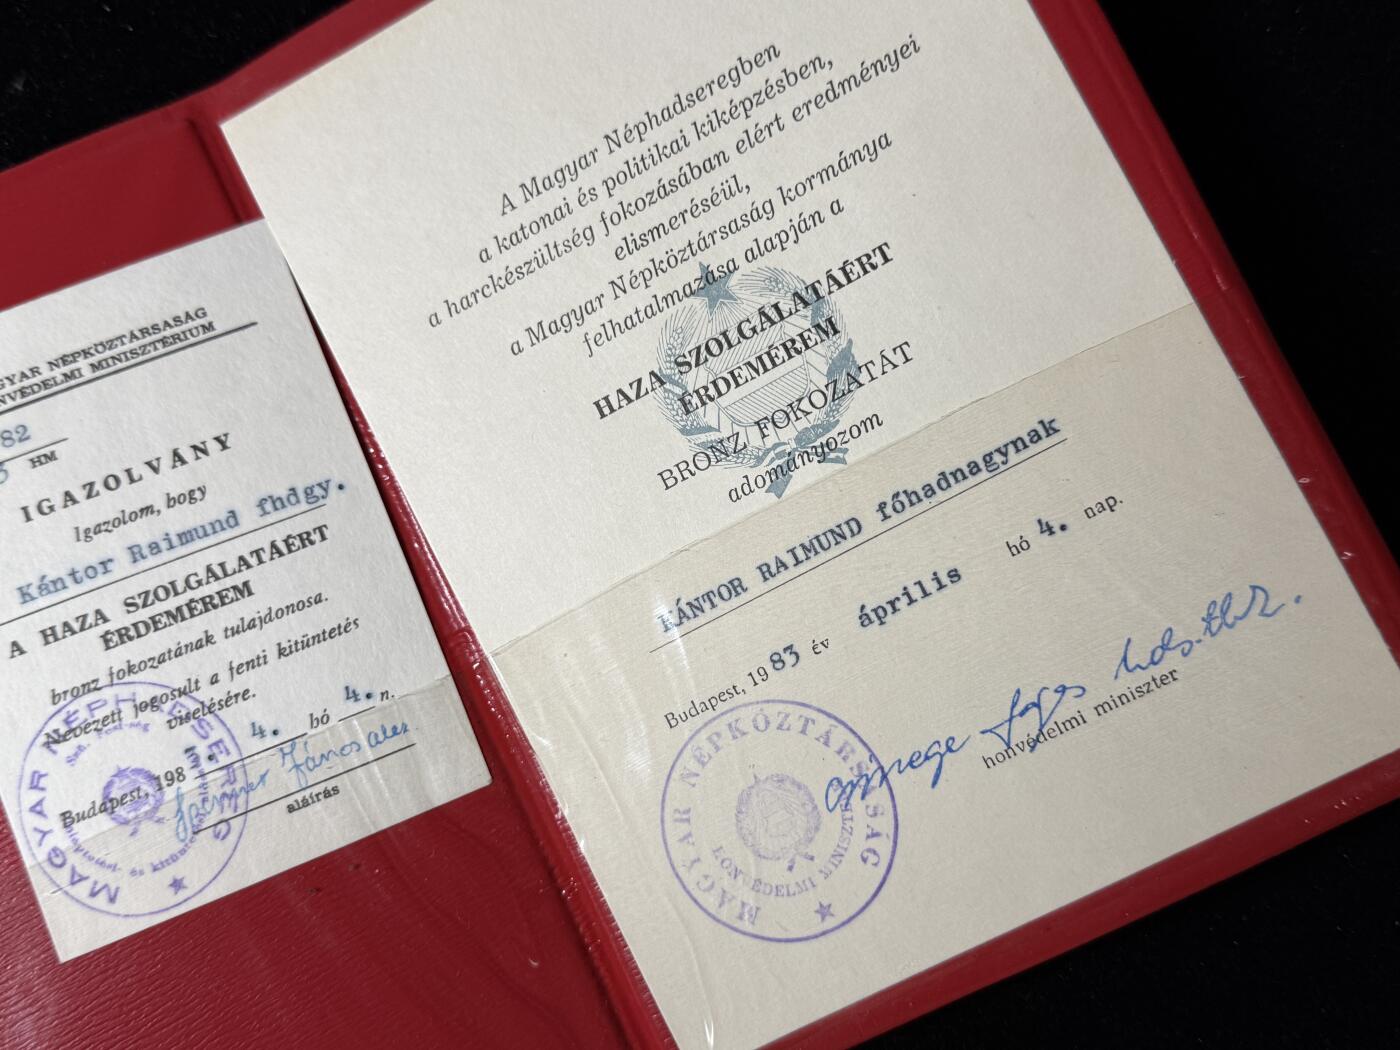 GYAR NÉPKÖZTÁRSASÁG
NVÉDELMI MINISZTÉRIUM
82
HM
IGAZOLVÁNY
Igazolom, hogy
Kántor Raimund fhdgy.
A HAZA SZOLGÁLATÁÉRT
ÉRDEMÉREM
bronz fokozatának tulajdonosa.
Nevezett jogosult a fenti kitüntetés
viselésére.
Budapest, 198 4. hó 4. n.
János alez.
aláírás
MAGYAR NÉPHADSEREG
A Magyar Néphadseregben
a katonai és politikai kiképzésben,
a harckészültség fokozásában elért eredményei
elismeréséül,
a Magyar Népköztársaság kormánya
felhatalmazása alapján a
HAZA SZOLGÁLATÁÉRT
ÉRDEMÉREM
BRONZ FOKOZATÁT
adományozom
KÁNTOR RAIMUND főhadnagynak
Budapest, 1983 év április hó 4. nap.
honvédelmi miniszter
MAGYAR NÉPKÖZTÁRSASÁG
HONVÉDELMI MINISZTER